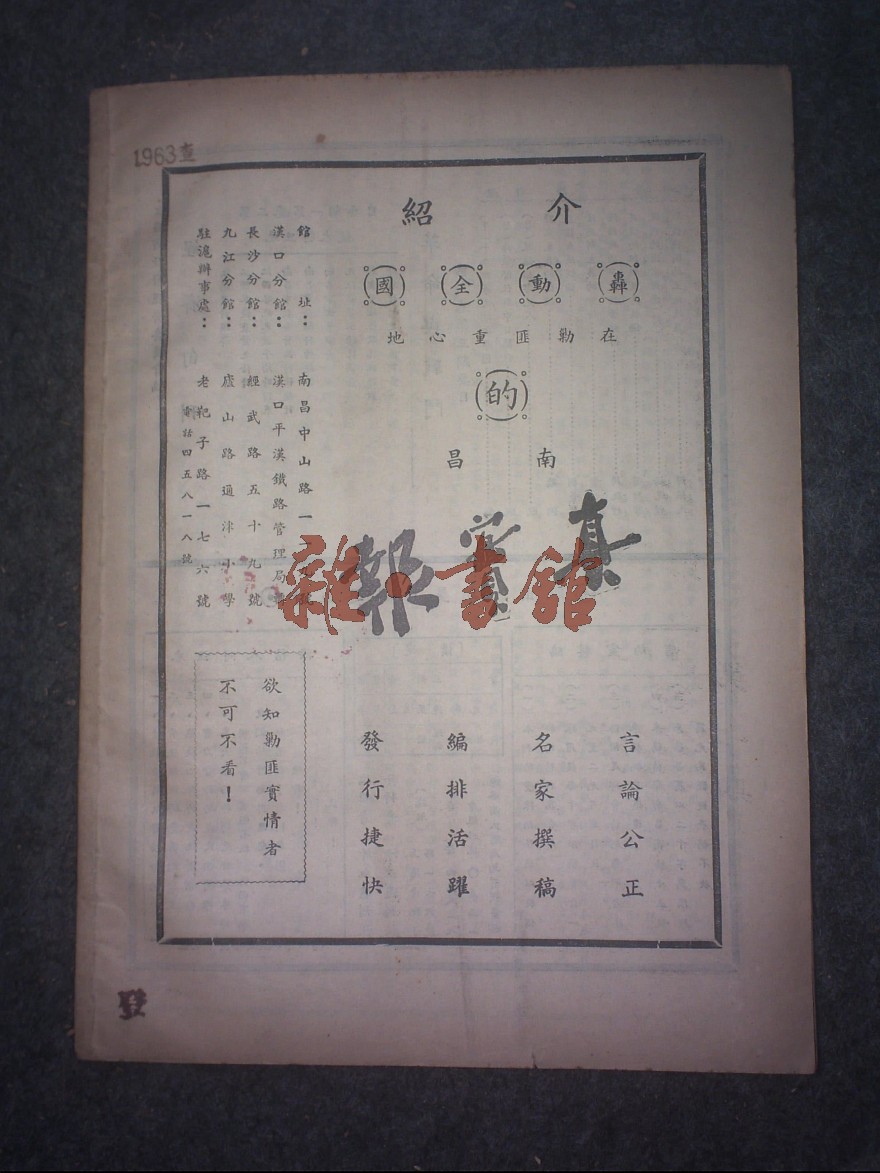 1963查
介紹
轟動全國
在勦匪重心地
的
南昌
真實報
言論公正
名家撰稿
編排活躍
發行捷快
館址：南昌中山路一號
漢口分館：漢口平漢鐵路管理局
長沙分館：經武路五十九號
九江分館：廬山路通津小學
駐滬辦事處：老靶子路一七六號
電話四五八一八號
欲知勦匪實情者
不可不看！
雜·書館